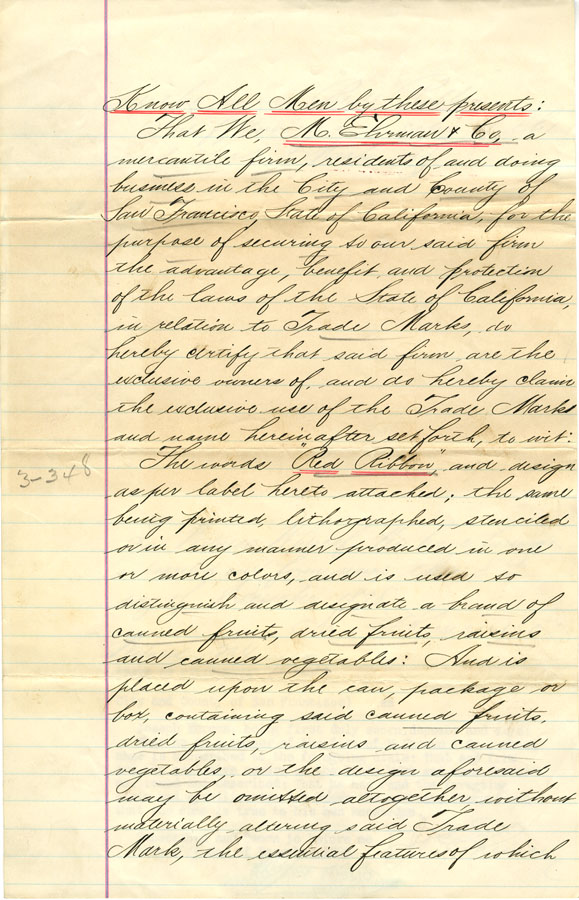 Know All Men by these presents:
That We, M. Ehrman & Co, a
mercantile firm, residents of and doing
business in the City and County of
San Francisco, State of California, for the
purpose of securing to our said firm
the advantage, benefit, and protection
of the laws of the State of California,
in relation to Trade Marks, do
hereby certify that said firm are the
exclusive owners of, and do hereby claim
the exclusive use of the Trade Marks
and name hereinafter set forth, to wit:
The words "Red Ribbon", and design
as per label hereto attached; the same
being printed, lithographed, stenciled
or in any manner produced in one
or more colors, and is used to
distinguish and designate a brand of
canned fruits, dried fruits, raisins
and canned vegetables: And is
placed upon the can, package or
box, containing said canned fruits,
dried fruits, raisins and canned
vegetables, or the design aforesaid
may be omitted altogether without
materially altering said Trade
Mark, the essential features of which
3-348